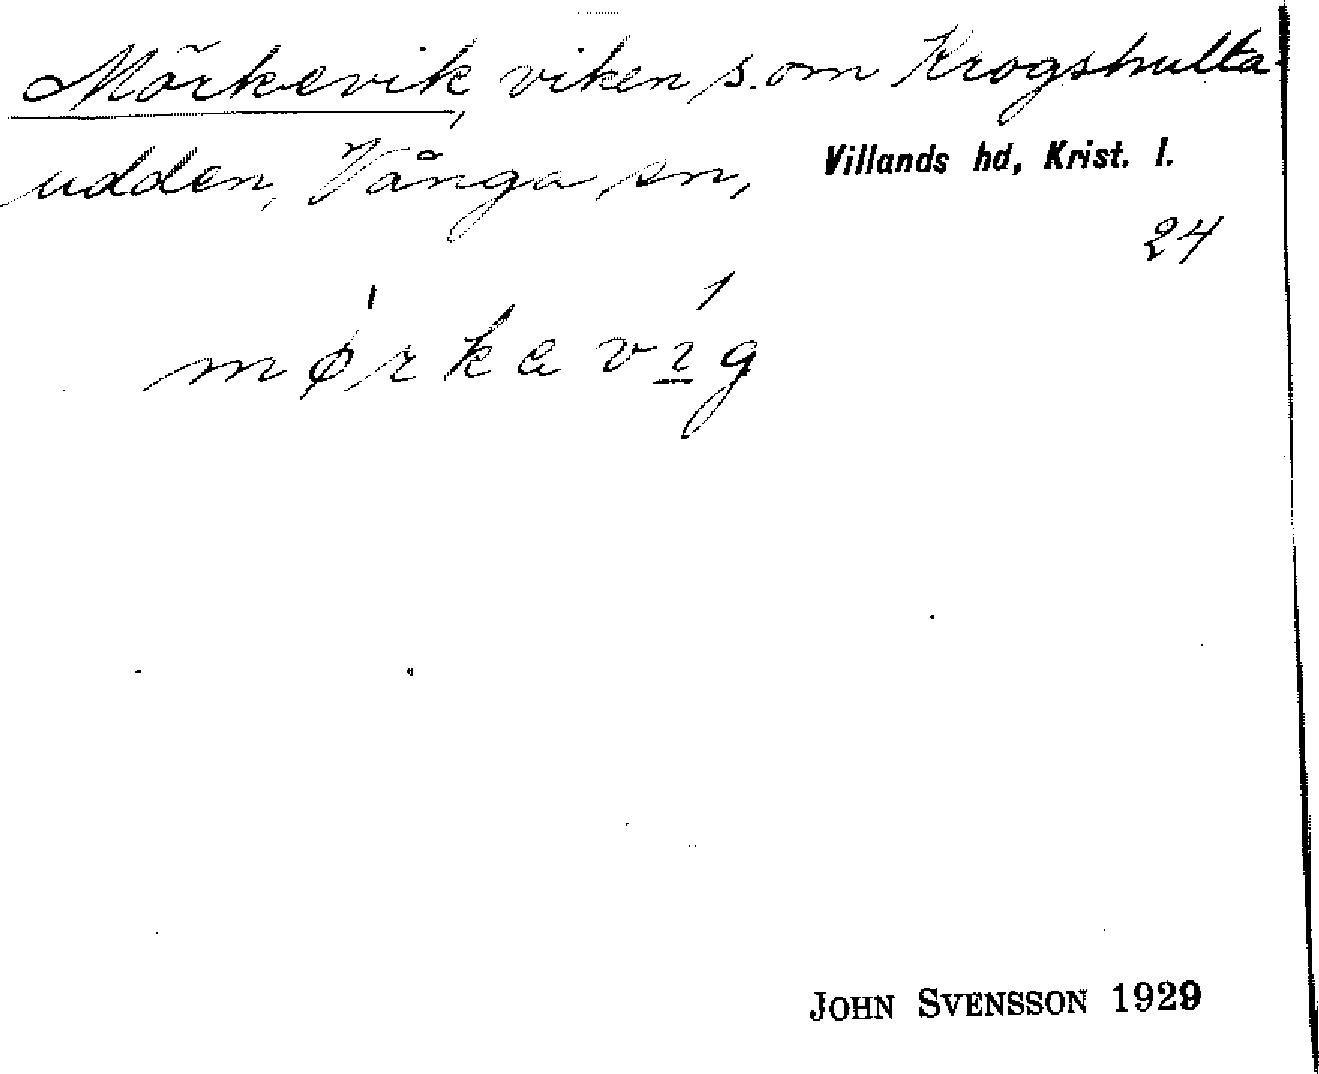 Mörkevik, viken s. om Krogshulta-
udden, Vånga sn, Villands hd, Krist. l.
24
mørkavıg
JOHN SVENSSON 1929